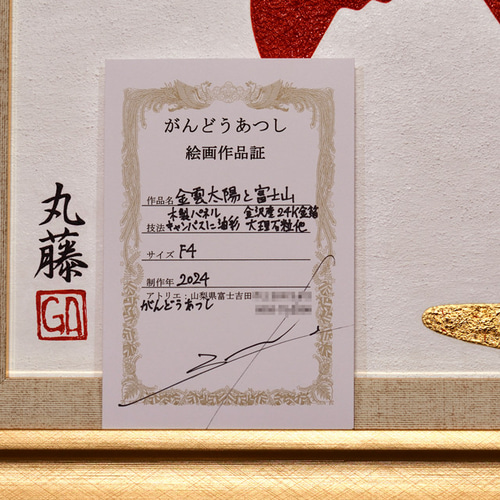 がんどうあつし
絵画作品証
作品名 金雲太陽と富士山
技法 木製パネル 金沢産24K金箔
キャンバスに油彩 大理石粒他
サイズ F4
制作年 2024
アトリエ:山梨県富士吉田
がんどうあつし
丸藤
GA